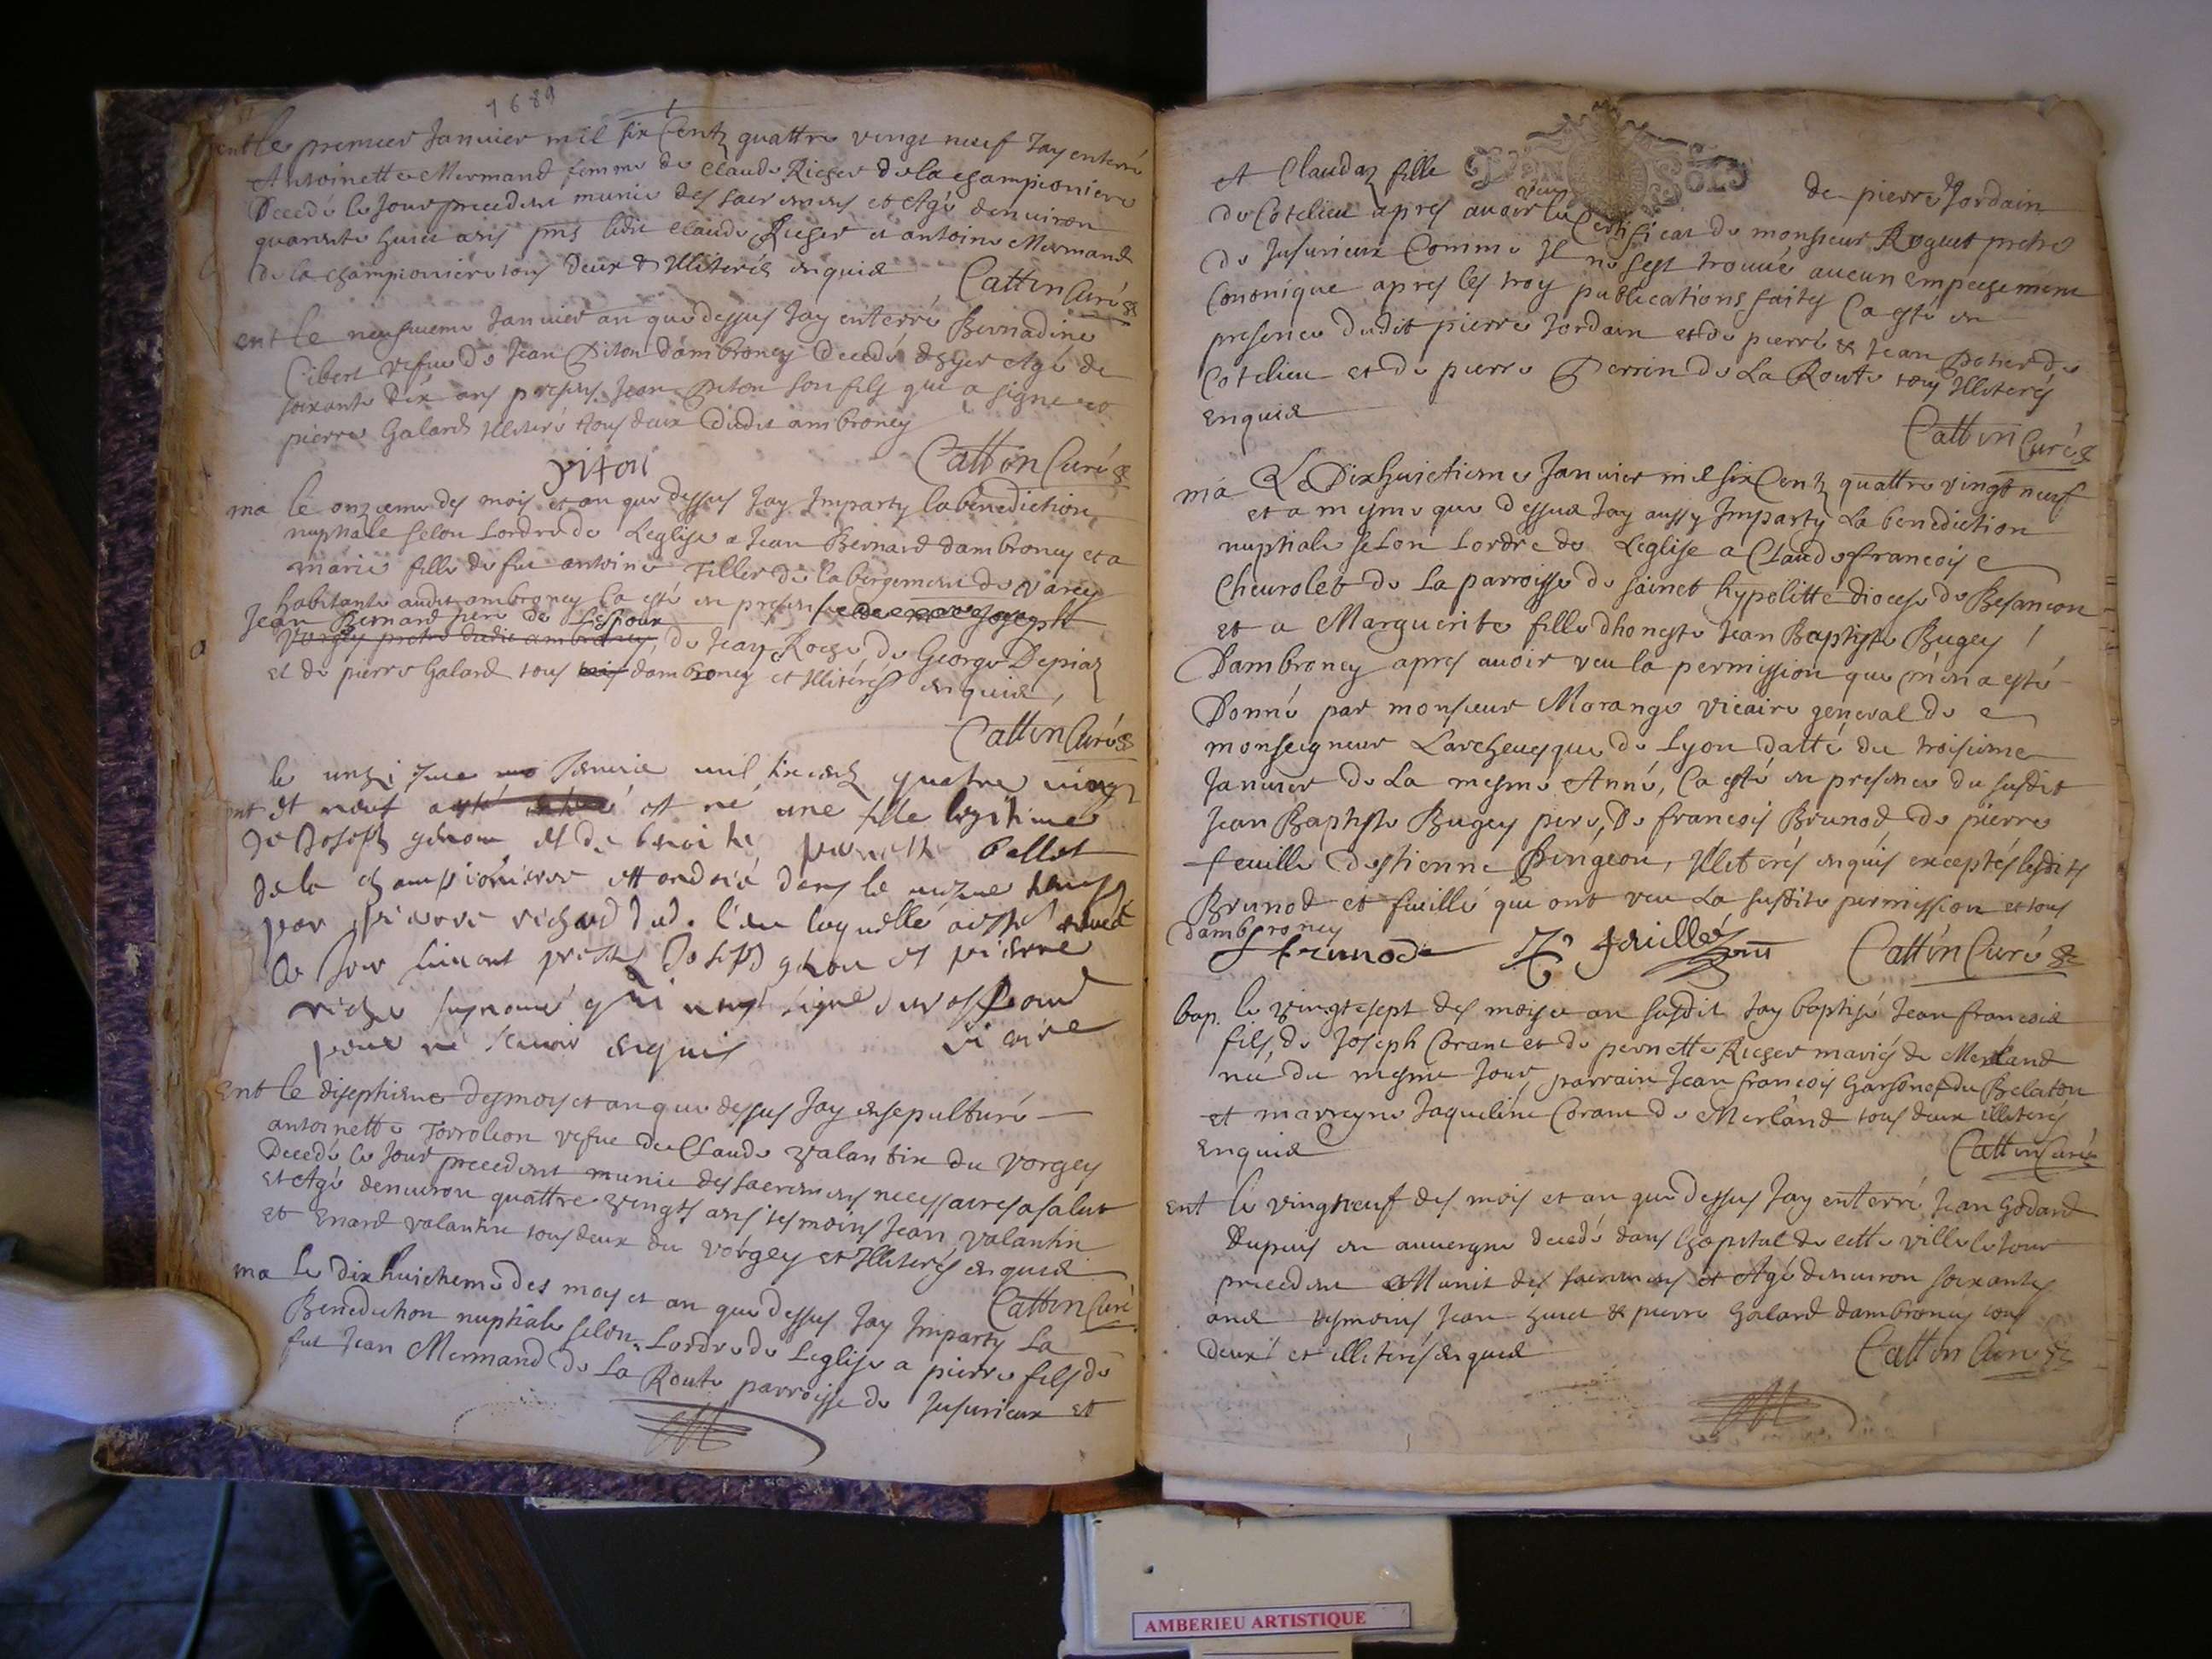 1689
ent le premier Januier mil six Centz quattre vingt neuf Jay enterré
Antoinette Mermand femme de Claude Rieger de la championiere
Decedé le Jour precedent munie des sacremens et Agé denuiron
quarente huict ans pnts ledit Claude Rieger et antoine Mermand
de la championiere tous Deux Illiterés enquis Cattin Curé
ent le neufuieme Januier an que dessus Jay enterré Bernadine
Cibert vefue de Jean Piton dambroney Decedé hyer Agé de
soixante Dix ans presens Jean Piton son fils qui a signe et
pierre Galard Illiteré tous deux dudit ambroney
piton Cattin Curé
ma le onzieme des mois et an que dessus Jay Imparty la benediction
nuptiale selon Lordre de Leglise a Jean Bernard dambroney et a
marie fille de feu antoine Tillier de labergement de Varey
habitante audit ambroney Ca esté en presence de Joseph
Jean Bernard pere de Lespoux
Vorgey pretre dudit ambroney, de Jean Roche de George Depiaz
et de pierre Galard tous dambroney et Illiterés enquis,
Cattin Curé
le unzi Januie mil six cent quatre uingt
et neuf est né une fille legitime
de Joseph genou et de benoite pernette ballet
de la championiere ett ondoié dans le mesme temps
par pierre richard dud. lieu laquelle
le jour suiuant presens Joseph genou et pierre
qui nont signé
pour ne scauoir enquis vicaire
Ent le diseptieme des moys et an que dessus Jay ensepulturé
antoinette Torrolion vefue de Claude Valantin du Vorgey
Decedé le Jour precedent munie des sacremens necessaires a salut
et Agé denuiron quattre vingts ans tesmoins Jean Valantin
et Enard Valantin tous deux du Vorgey et Illiterés enquis
Cattin Curé
ma Le dixhuictieme des moys et an que dessus Jay Imparty La
Benediction nuptiale selon Lordre de Leglise a pierre fils de
fut Jean Mermand de La Route parroisse de Jusurieux et
et Claudaz fille de pierre Jordain
veu
de Cotelieu apres auoir lu Certificat de monsieur Roguet pretre
de Jusurieux Comme Il ne sest trouué aucun empeschement
Cononique apres les troy publications faites Ca esté en
presence dudit pierre Jordain et de pierre & Jean Potier de
Cotelieu et de pierre Perrin de La Route tous Illiterés
enquis
Cattin Curé
ma Le Dixhuictieme Januier mil six Centz quattre vingt neuf
et a mesme que dessus Jay aussy Imparty La benediction
nuptiale selon Lordre de Leglise a Claude francois
Cheurolet de La parroisse de sainct hypolitte diocese de Besancon
et a Marguerite fille dhoneste Jean Baptiste Bugey
Dambroney apres auoir veu la permission que men a esté
Donné par monsieur Morange vicaire general de
monseigneur Larcheuesque de Lyon datté du troisieme
Januier de La mesme Anné, Ca esté en presence du susdit
Jean Baptiste Bugey pere, De francois Brunod de pierre
feuille destienne Pingeon, Illiterés enquis exceptés lesdits
Brunod et fuillié qui ont veu La susdite permission et tous
dambroney
f brunod feuillé Cattin Curé
bap. le vingt sept des mois et an susdit Jay baptisé Jean francois
fils, de Joseph Corant et de pernette Rieger mariés de Merland
né du mesme Jour, parrain Jean francois Garsonet du Belaton
et marreyne Jaqueline Corant de Merland tous deux illiterés
enquis Cattin Curé
ent le vingt neuf des mois et an que dessus Jay enterré Jean Godard
Dupuis en auuergne decedé dans lhopital de cette ville le Jour
precedent Munit des sacremens et Agé denuiron soixante
ans tesmoins Jean huet & pierre Galard dambroney tous
deux et illiterés enquis Cattin Curé
AMBERIEU ARTISTIQUE